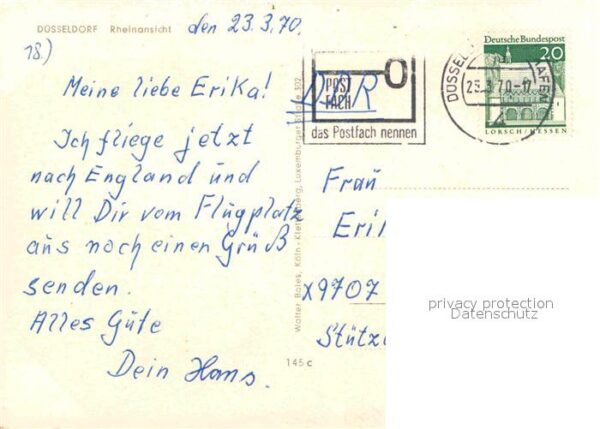 DÜSSELDORF Rheinansicht
den 23.3.70.
18.)
Meine liebe Erika!
Ich fliege jetzt
nach England und
will Dir vom Flugplatz
aus noch einen Gruß
senden.
Alles Gute
Dein Hans.
145 c
Walter Botes, Köln-Klettenberg, Luxemburger Straße 302
POST
FACH
das Postfach nennen
DDR
DÜSSEL
AFEN
23.3.70-17
Deutsche Bundespost
20
LORSCH/HESSEN
Frau
Eri
X9707
Stütz
privacy protection
Datenschutz